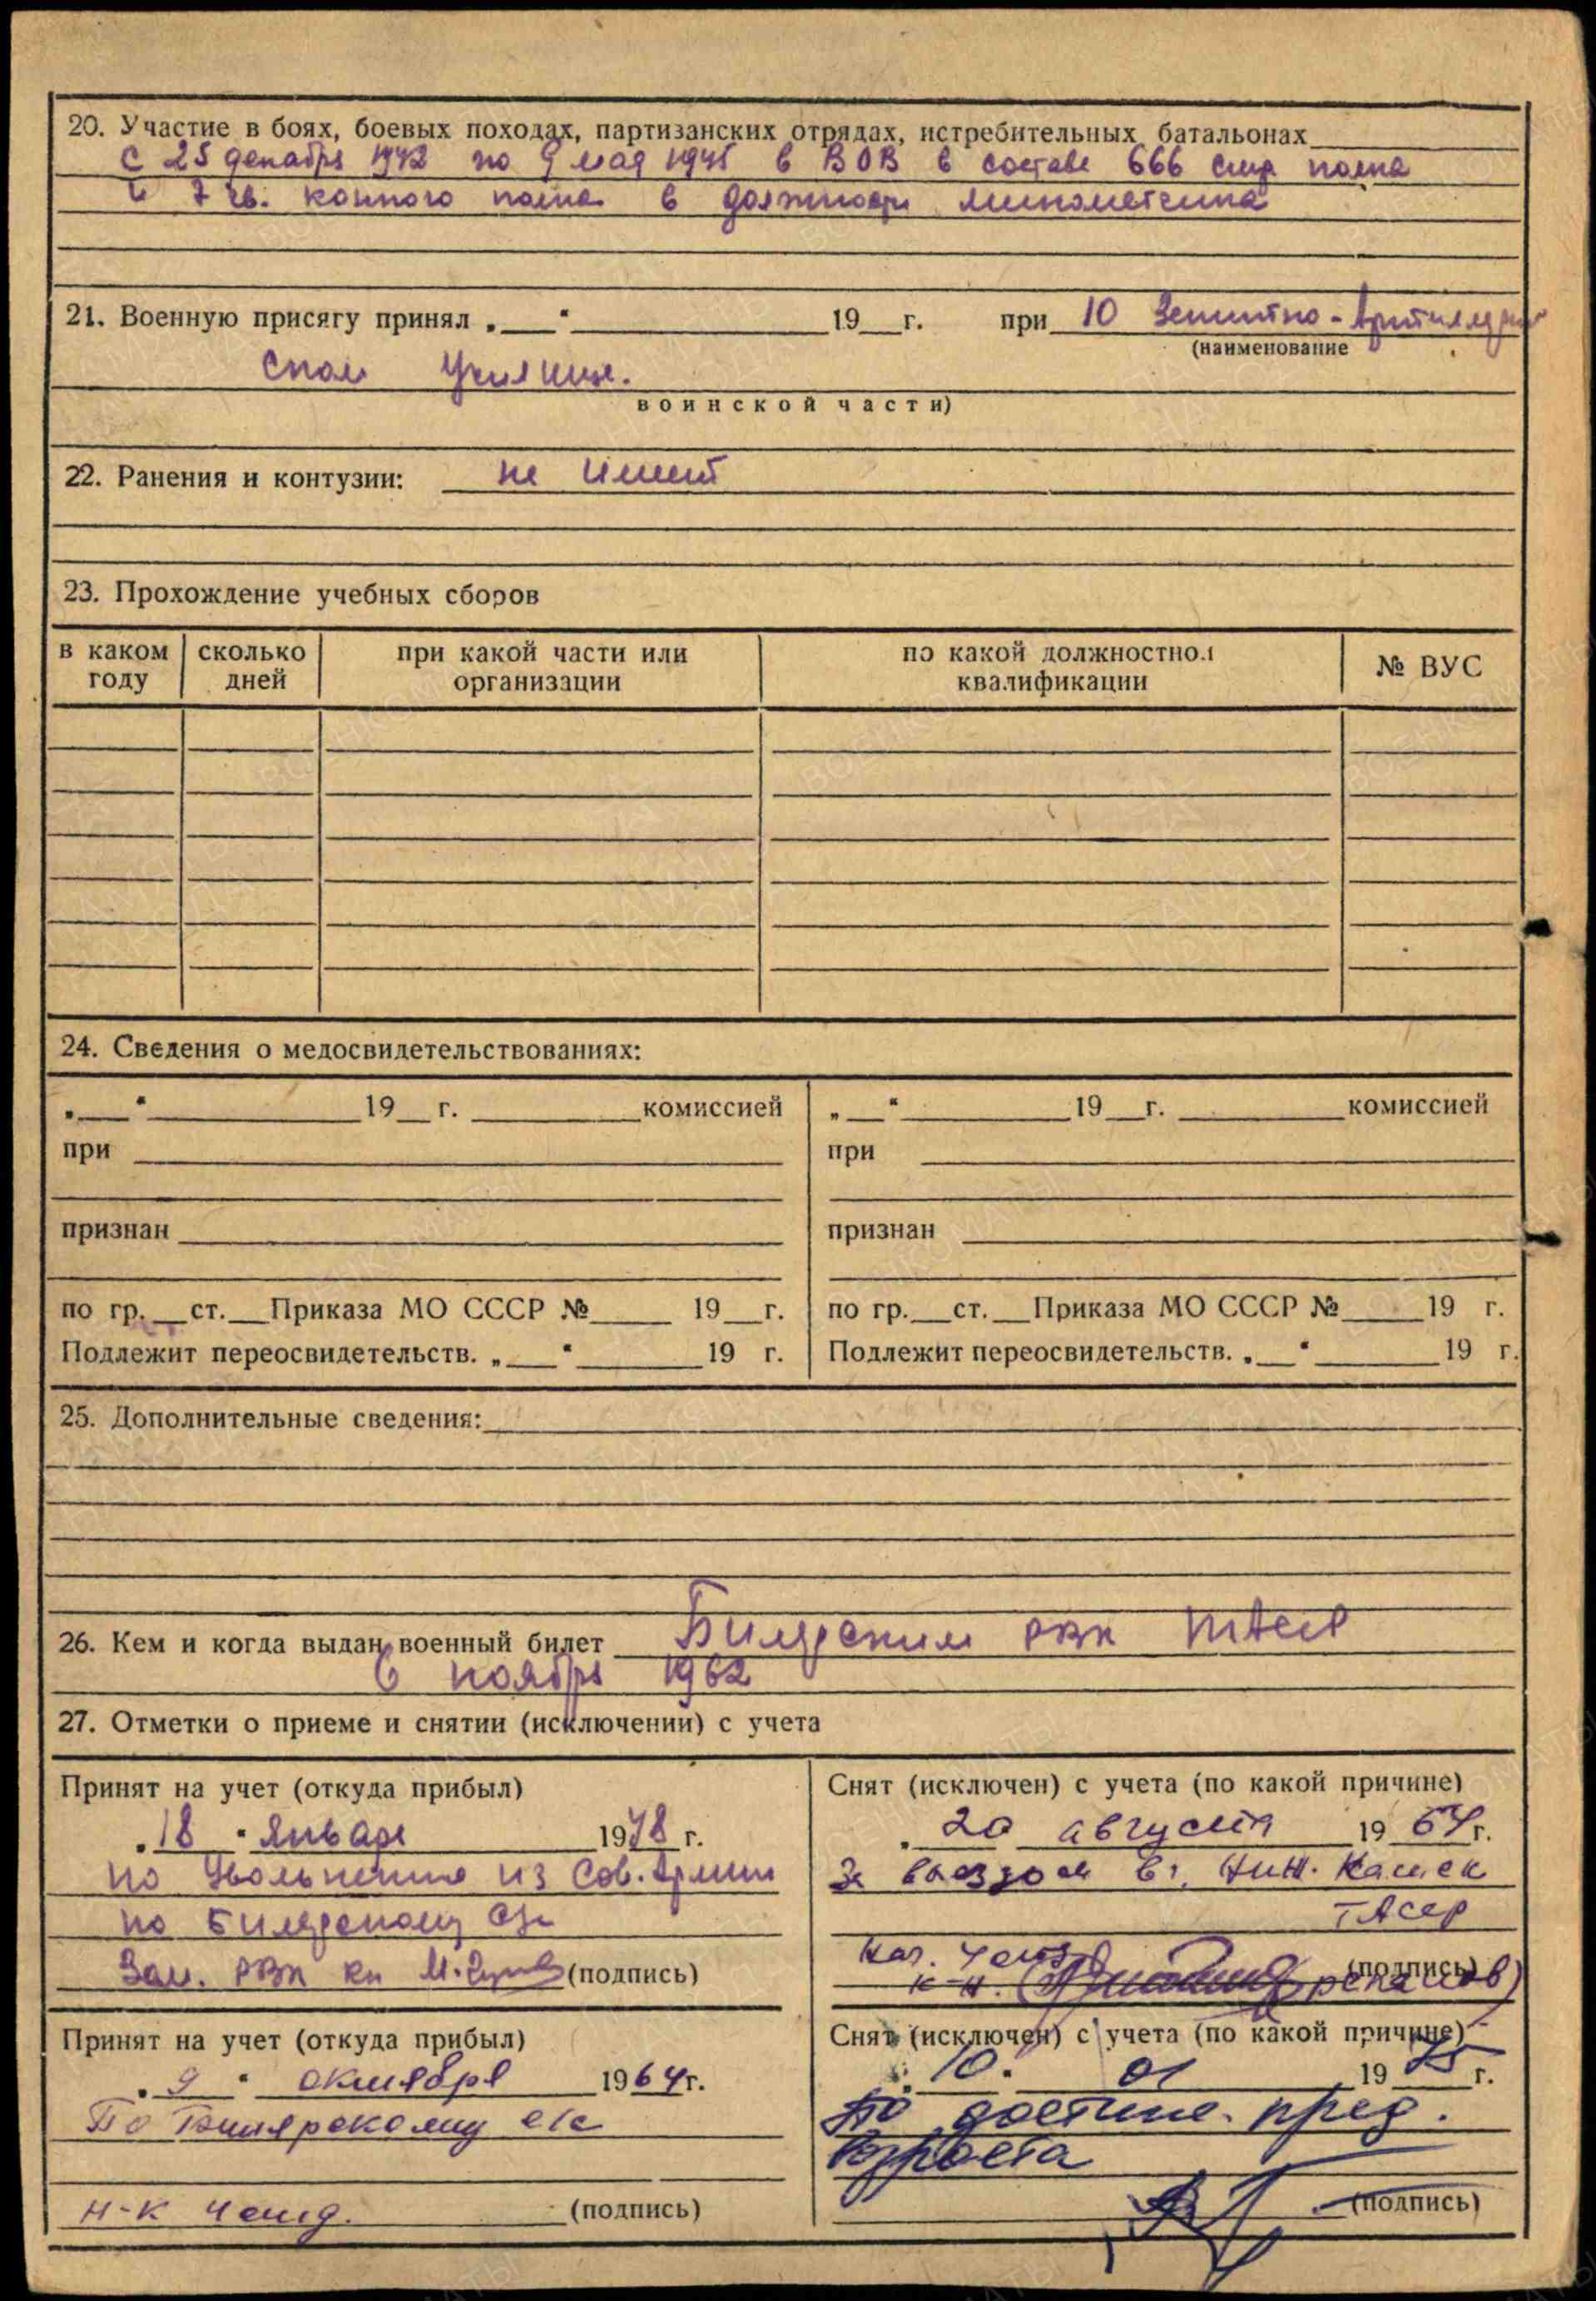 20. Участие в боях, боевых походах, партизанских отрядах, истребительных батальонах
с 25 декабря 1942 по 9 мая 1945 в ВОВ в составе 666 стр полка
и 7 гв. конного полка в должности минометчика
21. Военную присягу принял „ “ 19 г. при 10 Зенитно-Артиллерий
(наименование
ском Училище.
воинской части)
22. Ранения и контузии: не имеет
23. Прохождение учебных сборов
в каком году сколько дней при какой части или организации по какой должностной квалификации № ВУС
24. Сведения о медосвидетельствованиях:
„ “ 19 г. комиссией „ “ 19 г. комиссией
при при
признан признан
по гр. ст. Приказа МО СССР № 19 г. по гр. ст. Приказа МО СССР № 19 г.
Подлежит переосвидетельств. „ “ 19 г. Подлежит переосвидетельств. „ “ 19 г.
25. Дополнительные сведения:
26. Кем и когда выдан военный билет Билярским РВК ТАССР
6 ноября 1962
27. Отметки о приеме и снятии (исключении) с учета
Принят на учет (откуда прибыл)
„18“ января 1948 г.
по Увольнению из Сов. Армии
по Билярскому с/с
Зам. РВК кп (подпись)
Снят (исключен) с учета (по какой причине)
„ 20 августа 19 64 г.
За выездом в г. Ниж. Камск
ТАССР
Нач.
к-н. (подпись)
Принят на учет (откуда прибыл)
„ 9 “ октября 1964 г.
По Билярскому с/с
н-к (подпись)
Снят (исключен) с учета (по какой причине)
„ 10. 01 19 75 г.
По достиж. пред.
возраста
(подпись)